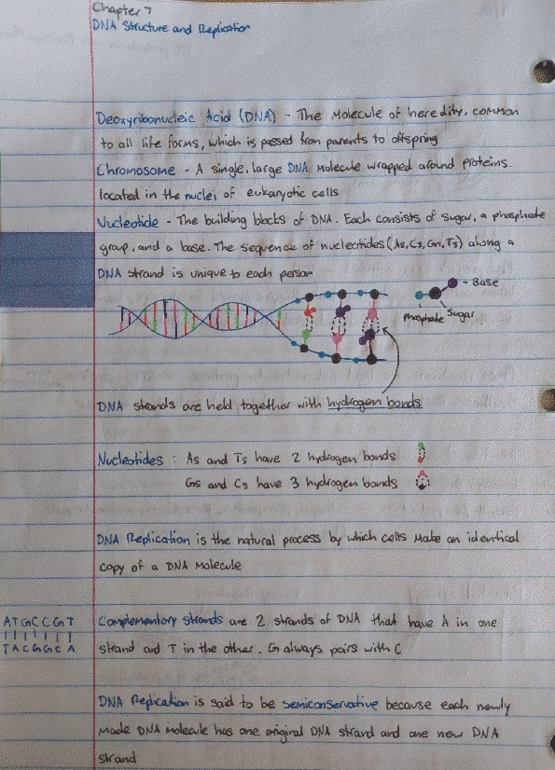 Chapter 7
DNA Structure and Replication
Deoxyribonucleic Acid (DNA) - The molecule of heredity, common
to all life forms, which is passed from parents to offspring
Chromosome - A single, large DNA molecule wrapped around proteins.
located in the nuclei of eukaryotic cells
Nucleotide - The building blocks of DNA. Each consists of sugar, a phosphate
group, and a base. The sequence of nucleotides (As, Cs, Gs, Ts) along a
DNA strand is unique to each person
- Base
Phosphate Sugar
DNA strands are held together with hydrogen bonds
Nucleotides : As and Ts have 2 hydrogen bonds
Gs and Cs have 3 hydrogen bonds
DNA Replication is the natural process by which cells make an identical
copy of a DNA molecule
ATGCCGT
TACGGCA
Complementory strands are 2 strands of DNA that have A in one
strand and T in the other. G always pairs with C
DNA Replication is said to be semiconservative because each newly
made DNA molecule has one original DNA strand and one new DNA
strand